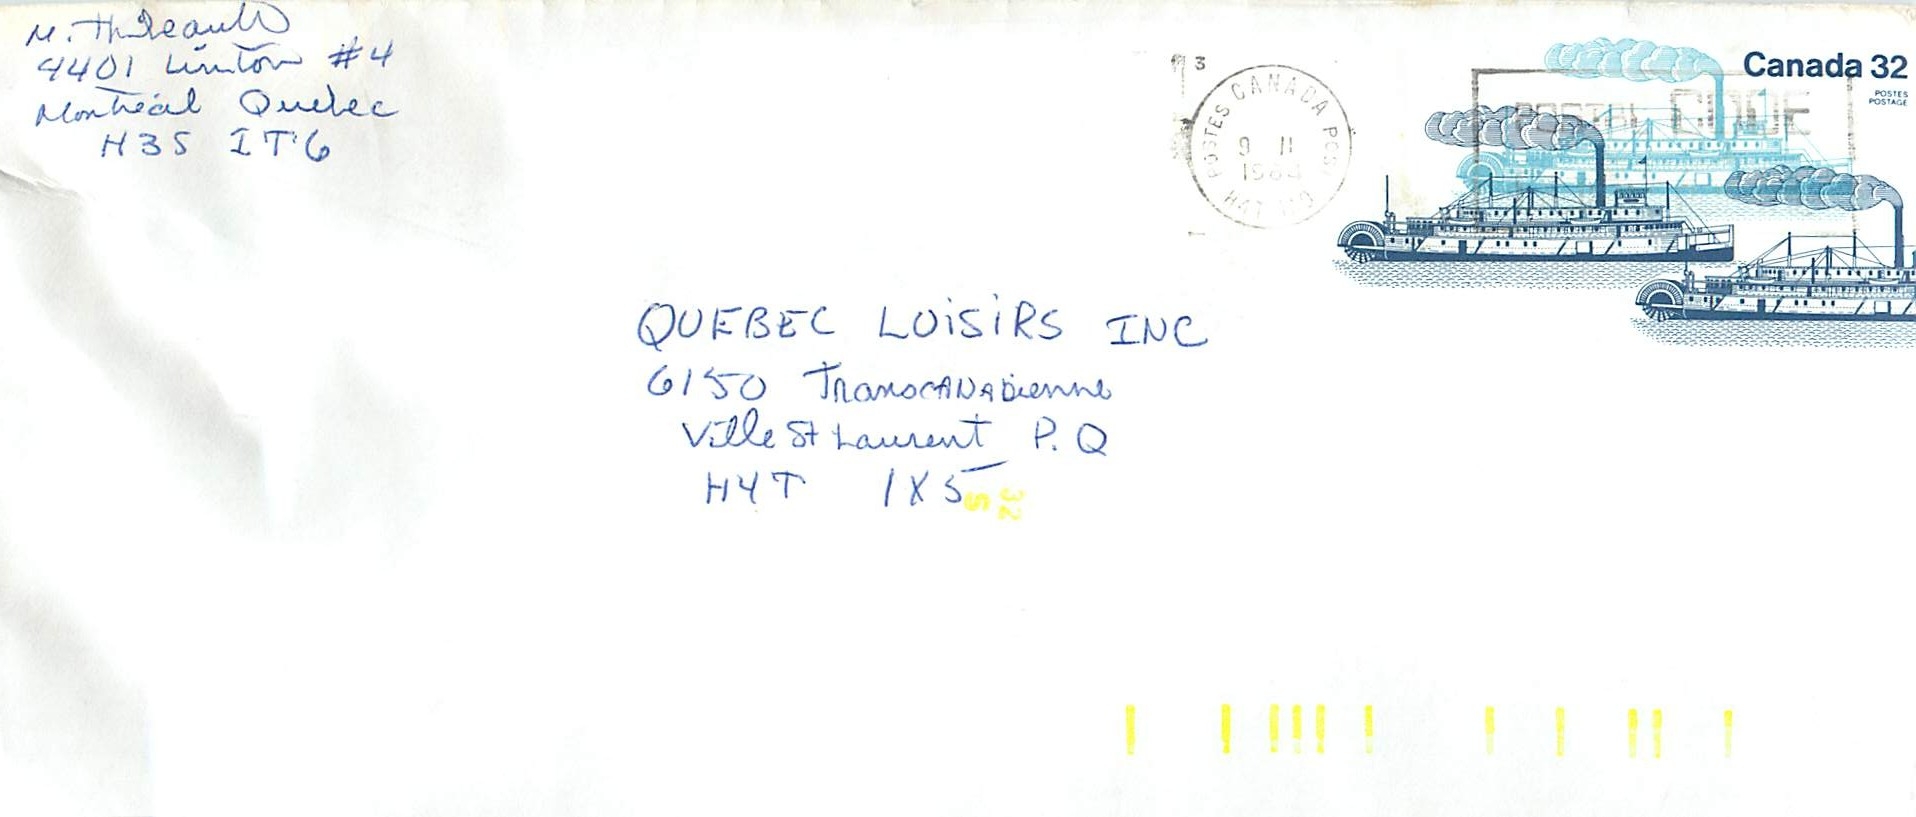 M. Thireault
4401 Linton #4
Montréal Quebec
H3S 1T6
3
POSTES CANADA POST
9 II
1983
H4T
POSTAL CODE
Canada 32
POSTES
POSTAGE
QUEBEC LOISIRS INC
6150 Transcanadienne
Ville St Laurent P.Q
H4T 1X5
32
S